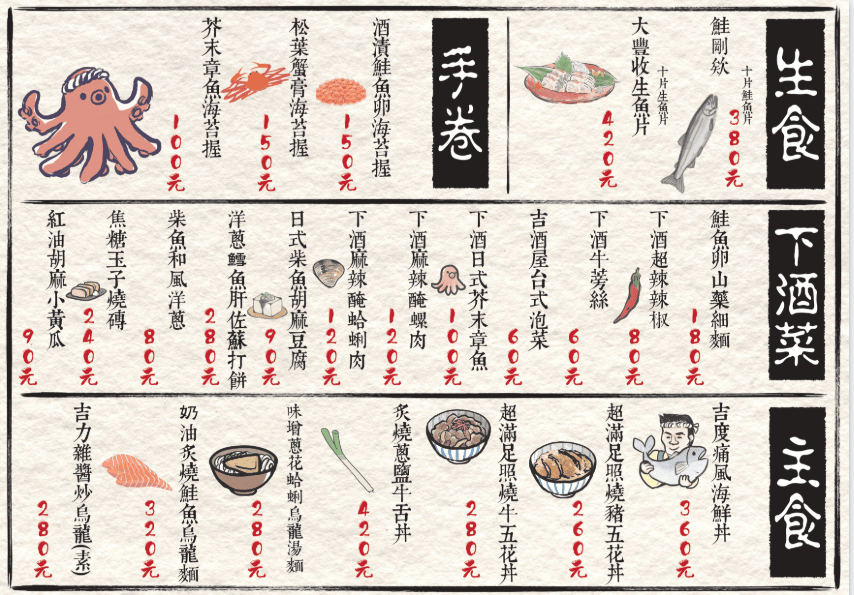 生食
鮭剛欸
十片鮭魚片
380元
大豐收生魚片
十片生魚片
420元
手卷
酒漬鮭魚卵海苔握
150元
松葉蟹膏海苔握
150元
芥末章魚海苔握
100元
下酒菜
鮭魚卵山藥細麵
180元
下酒超辣辣椒
80元
下酒牛蒡絲
60元
吉酒屋台式泡菜
60元
下酒日式芥末章魚
100元
下酒麻辣醃螺肉
120元
下酒麻辣醃蛤蜊肉
120元
日式柴魚胡麻豆腐
90元
洋蔥鱈魚肝佐蘇打餅
280元
柴魚和風洋蔥
80元
焦糖玉子燒磚
240元
紅油胡麻小黃瓜
90元
主食
吉度痛風海鮮丼
360元
超滿足照燒豬五花丼
260元
超滿足照燒牛五花丼
280元
炙燒蔥鹽牛舌丼
420元
味增蔥花蛤蜊烏龍湯麵
280元
奶油炙燒鮭魚烏龍麵
320元
吉力雜醬炒烏龍(素)
280元